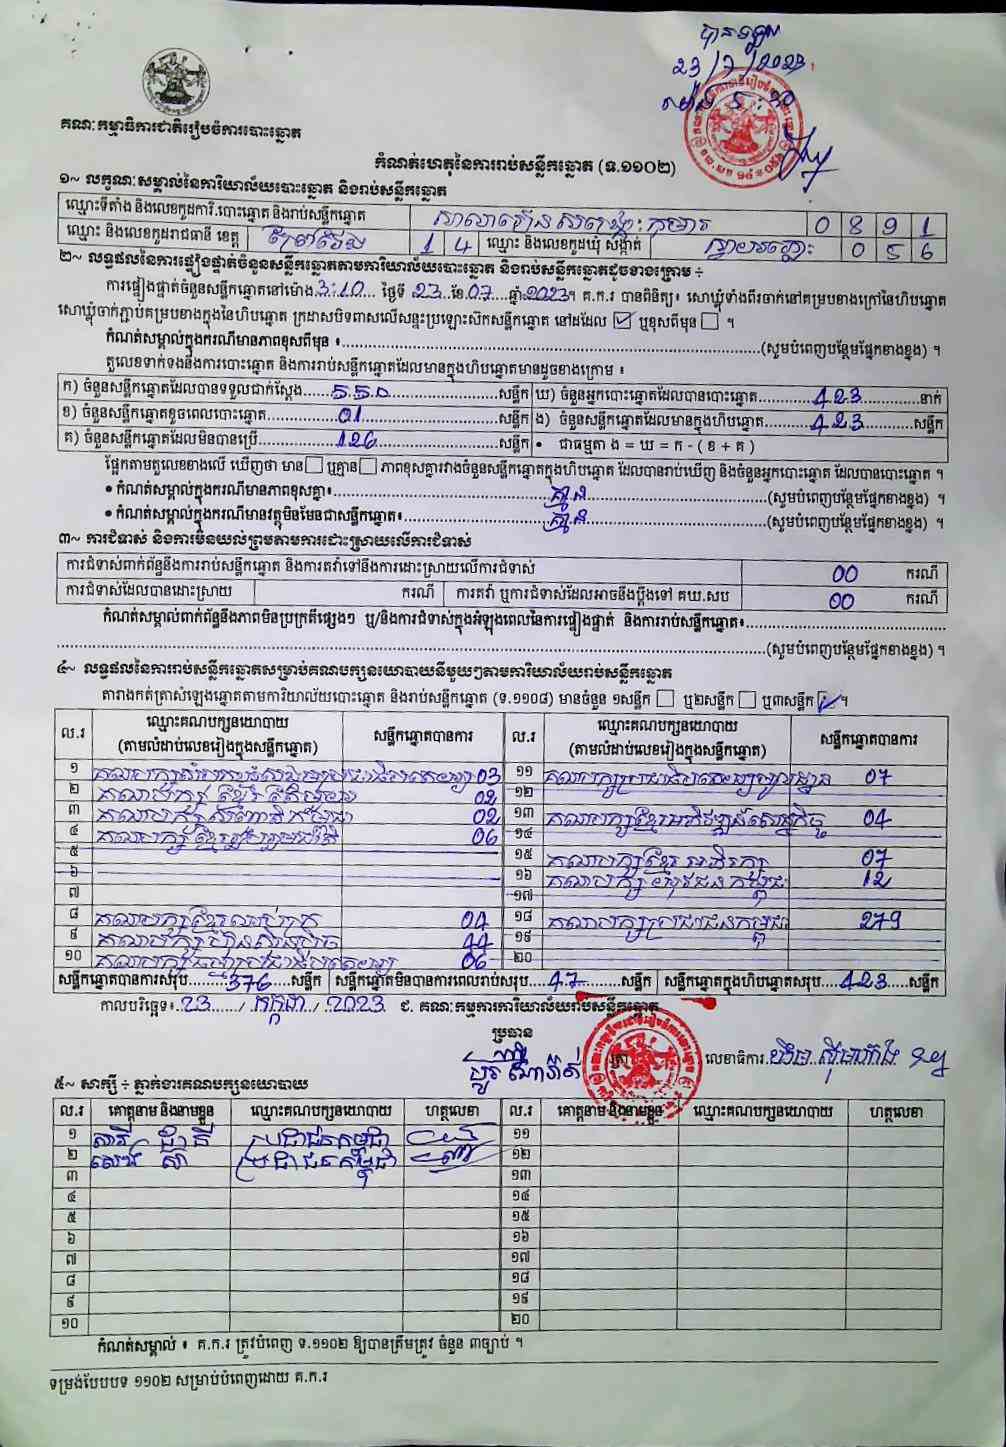 បានទទួល
23/7/2023
គណៈកម្មាធិការជាតិរៀបចំការបោះឆ្នោត
កំណត់ហេតុនៃការរាប់សន្លឹកឆ្នោត (ទ.១១០២)
១~ លក្ខណៈសម្គាល់នៃការិយាល័យបោះឆ្នោត និងរាប់សន្លឹកឆ្នោត
ឈ្មោះទីតាំង និងលេខកូដការិ.បោះឆ្នោត និងរាប់សន្លឹកឆ្នោត 0 8 9 1
ឈ្មោះ និងលេខកូដរាជធានី ខេត្ត ព្រៃវែង 1 4 ឈ្មោះ និងលេខកូដឃុំ សង្កាត់ 0 5 6
២~ លទ្ធផលនៃការផ្ទៀងផ្ទាត់ចំនួនសន្លឹកឆ្នោតតាមការិយាល័យបោះឆ្នោត និងរាប់សន្លឹកឆ្នោតដូចខាងក្រោម ÷
ការផ្ទៀងផ្ទាត់ចំនួនសន្លឹកឆ្នោតនៅម៉ោង 3:10 ថ្ងៃទី 23 ខែ 07 ឆ្នាំ 2023។ គ.ក.រ បានពិនិត្យ៖ សោឃ្លុំទាំងពីរចាក់នៅគម្របខាងក្រៅនៃហិបឆ្នោត
សោឃ្លុំចាក់ភ្ជាប់គម្របខាងក្នុងនៃហិបឆ្នោត ក្រដាសបិទពាសលើសន្ទះប្រឡោះស៊កសន្លឹកឆ្នោត នៅដដែល ☑ ឬខុសពីមុន ☐ ។
កំណត់សម្គាល់ក្នុងករណីមានភាពខុសពីមុន ៖..........(សូមបំពេញបន្ថែមផ្នែកខាងខ្នង) ។
តួលេខទាក់ទងនឹងការបោះឆ្នោត និងការរាប់សន្លឹកឆ្នោតដែលមានក្នុងហិបឆ្នោតមានដូចខាងក្រោម ៖
ក) ចំនួនសន្លឹកឆ្នោតដែលបានទទួលជាក់ស្តែង 550 សន្លឹក ឃ) ចំនួនអ្នកបោះឆ្នោតដែលបានបោះឆ្នោត 423 នាក់
ខ) ចំនួនសន្លឹកឆ្នោតខូចពេលបោះឆ្នោត 01 សន្លឹក ង) ចំនួនសន្លឹកឆ្នោតដែលមានក្នុងហិបឆ្នោត 423 សន្លឹក
គ) ចំនួនសន្លឹកឆ្នោតដែលមិនបានប្រើ 126 សន្លឹក • ជាធម្មតា ង = ឃ = ក - ( ខ + គ )
ផ្អែកតាមតួលេខខាងលើ ឃើញថា មាន ☐ ឬគ្មាន ☐ ភាពខុសគ្នារវាងចំនួនសន្លឹកឆ្នោតក្នុងហិបឆ្នោត ដែលបានរាប់ឃើញ និងចំនួនអ្នកបោះឆ្នោត ដែលបានបោះឆ្នោត ។
• កំណត់សម្គាល់ក្នុងករណីមានភាពខុសគ្នា៖ គ្មាន (សូមបំពេញបន្ថែមផ្នែកខាងខ្នង) ។
• កំណត់សម្គាល់ក្នុងករណីមានវត្ថុមិនមែនជាសន្លឹកឆ្នោត៖ គ្មាន (សូមបំពេញបន្ថែមផ្នែកខាងខ្នង) ។
៣~ ការជំទាស់ និងការមិនយល់ព្រមតាមការដោះស្រាយលើការជំទាស់
ការជំទាស់ពាក់ព័ន្ធនឹងការរាប់សន្លឹកឆ្នោត និងការតវ៉ាទៅនឹងការដោះស្រាយលើការជំទាស់ 00 ករណី
ការជំទាស់ដែលបានដោះស្រាយ ករណី ការតវ៉ា ឬការជំទាស់ដែលអាចនឹងប្តឹងទៅ គឃ.សប 00 ករណី
កំណត់សម្គាល់ពាក់ព័ន្ធនឹងភាពមិនប្រក្រតីផ្សេងៗ ឬ/និងការជំទាស់ក្នុងអំឡុងពេលនៃការផ្ទៀងផ្ទាត់ និងការរាប់សន្លឹកឆ្នោត៖..........
..........(សូមបំពេញបន្ថែមផ្នែកខាងខ្នង) ។
៤~ លទ្ធផលនៃការរាប់សន្លឹកឆ្នោតសម្រាប់គណបក្សនយោបាយនីមួយៗតាមការិយាល័យរាប់សន្លឹកឆ្នោត
តារាងកត់ត្រាសំឡេងឆ្នោតតាមការិយាល័យបោះឆ្នោត និងរាប់សន្លឹកឆ្នោត (ទ.១១០៨) មានចំនួន ១សន្លឹក ☐ ឬ២សន្លឹក ☐ ឬ៣សន្លឹក ☑។
ល.រ ឈ្មោះគណបក្សនយោបាយ (តាមលំដាប់លេខរៀងក្នុងសន្លឹកឆ្នោត) សន្លឹកឆ្នោតបានការ ល.រ ឈ្មោះគណបក្សនយោបាយ (តាមលំដាប់លេខរៀងក្នុងសន្លឹកឆ្នោត) សន្លឹកឆ្នោតបានការ
១ 03 ១១ 07
២ 02 ១២
៣ 02 ១៣ 04
៤ 06 ១៤
៥ ១៥ គណបក្សខ្មែរអភិរក្ស 07
៦ ១៦ គណបក្សយុវជនកម្ពុជា 12
៧ ១៧
៨ 04 ១៨ គណបក្សប្រជាជនកម្ពុជា 279
៩ 44 ១៩
១០ 06 ២០
សន្លឹកឆ្នោតបានការសរុប 376 សន្លឹក សន្លឹកឆ្នោតមិនបានការពេលរាប់សរុប 47 សន្លឹក សន្លឹកឆ្នោតក្នុងហិបឆ្នោតសរុប 423 សន្លឹក
កាលបរិច្ឆេទ៖ 23 / កក្កដា / 2023 ជ. គណៈកម្មការការិយាល័យរាប់សន្លឹកឆ្នោត
ប្រធាន
លេខាធិការ
៥~ សាក្សី ÷ ភ្នាក់ងារគណបក្សនយោបាយ
ល.រ គោត្តនាម និងនាមខ្លួន ឈ្មោះគណបក្សនយោបាយ ហត្ថលេខា ល.រ គោត្តនាម និងនាមខ្លួន ឈ្មោះគណបក្សនយោបាយ ហត្ថលេខា
១ ប្រជាជនកម្ពុជា ១១
២ ប្រជាជនកម្ពុជា ១២
៣ ១៣
៤ ១៤
៥ ១៥
៦ ១៦
៧ ១៧
៨ ១៨
៩ ១៩
១០ ២០
កំណត់សម្គាល់ ៖ គ.ក.រ ត្រូវបំពេញ ទ.១១០២ ឱ្យបានត្រឹមត្រូវ ចំនួន ៣ច្បាប់ ។
ទម្រង់បែបបទ ១១០២ សម្រាប់បំពេញដោយ គ.ក.រ